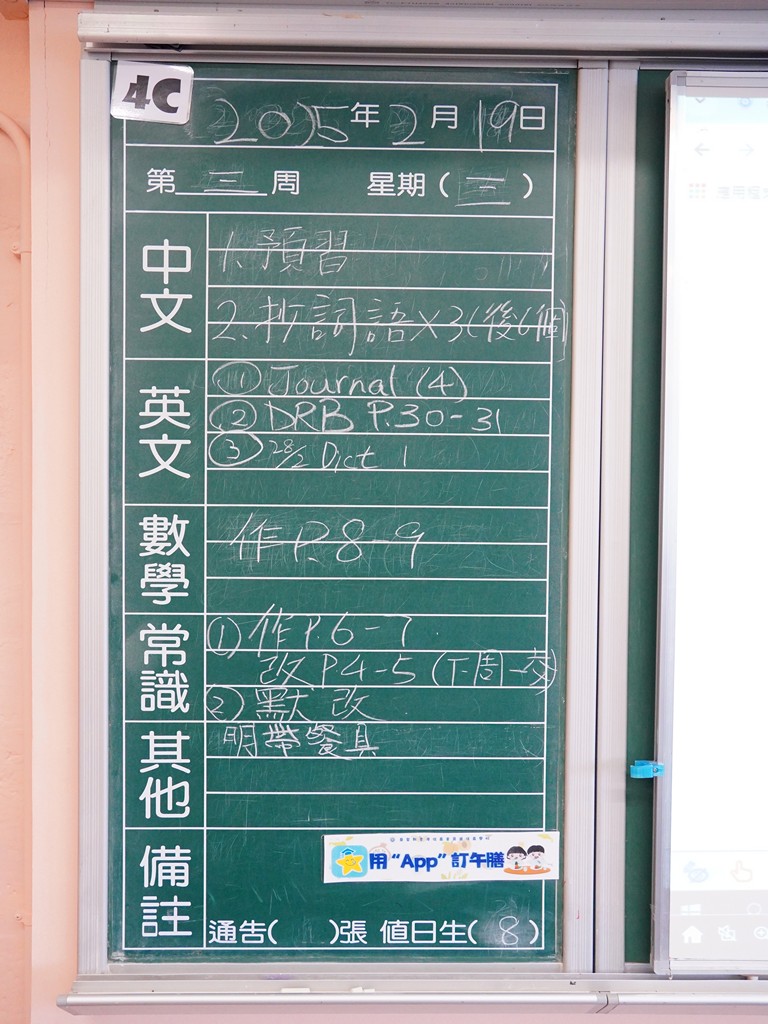 4C
2025年2月19日
第三周 星期(三)
中文
1.預習
2.抄詞語×3(後6個)
英文
① Journal (4)
② DRB P.30-31
③ 28/2 Dict 1
數學
作P.8-9
常識
① 作P.6-7
改P4-5 (下周一交)
② 默改
其他
明帶餐具
備註
用“App”訂午膳
通告( )張 值日生(8)